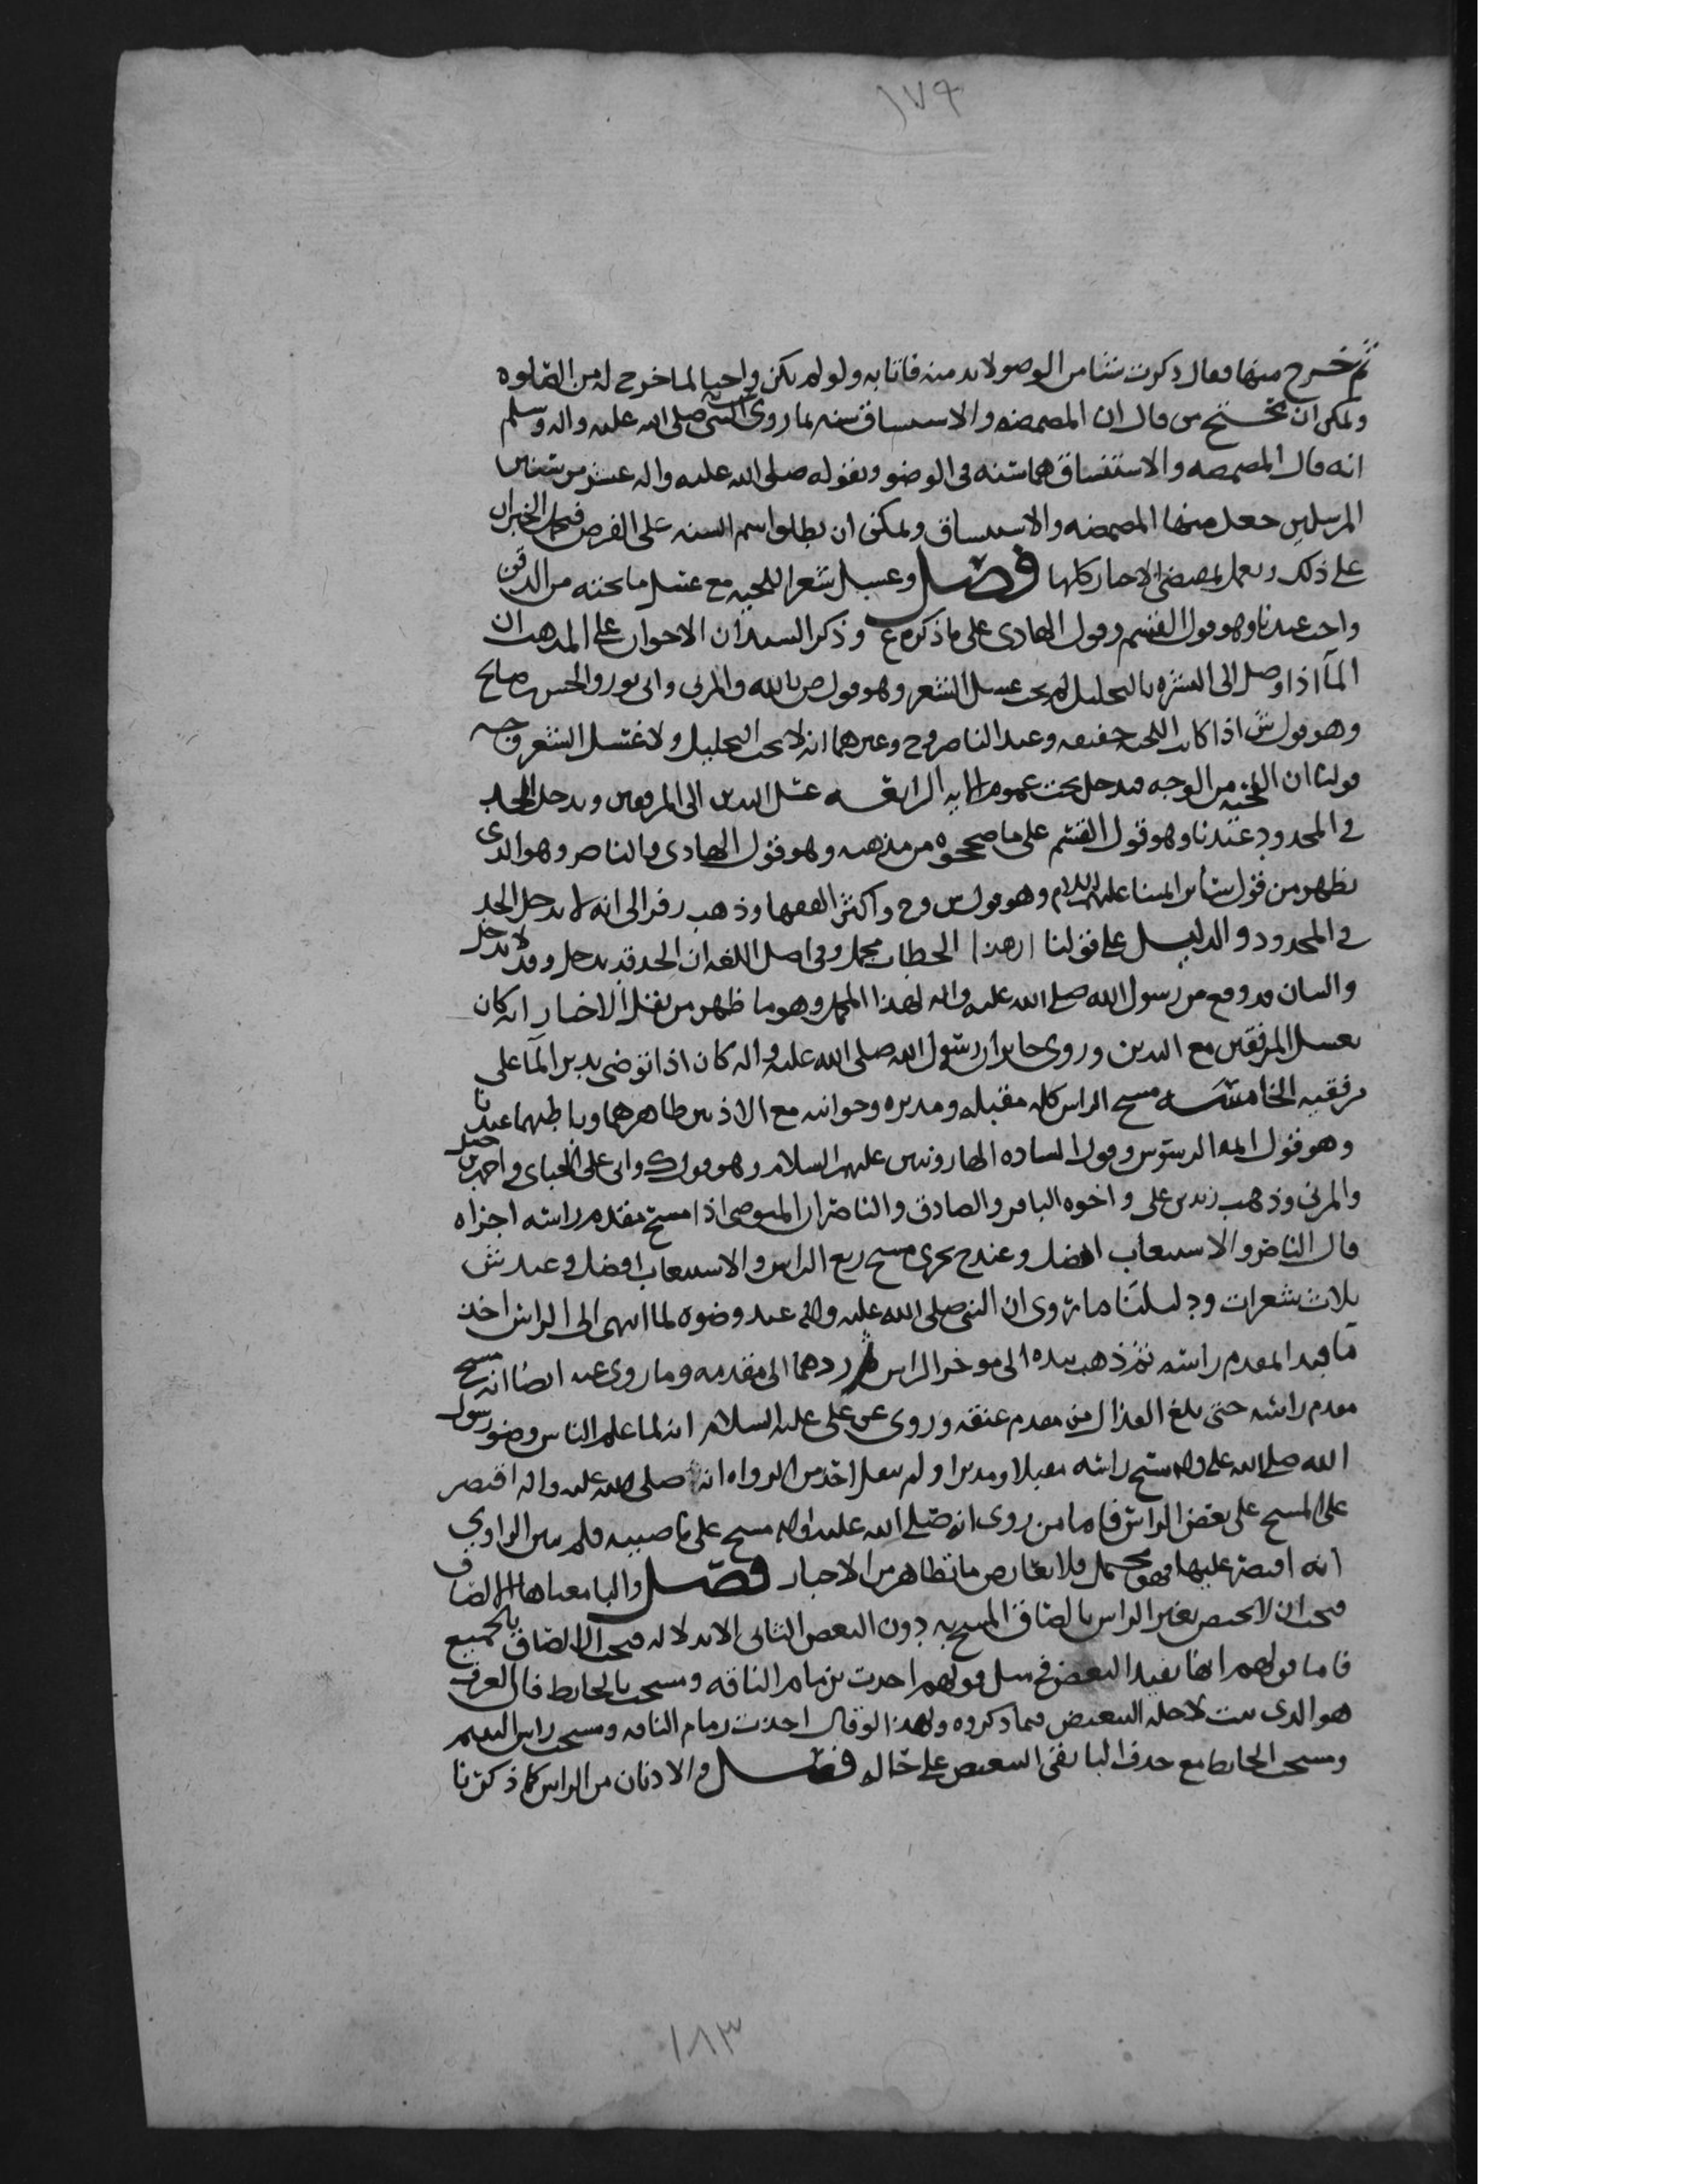 ١٧٩
ثم خرج منها فقال ذكرت شيئا من الوضو لا بد منه فاتا به ولو لم يكن واجبا لما خرج له من الصلوه
ويمكن ان يحتج من قال ان المضمضه والاستنشاق سنه بما روى عن النبي صلى الله عليه واله وسلم
انه قال المضمضه والاستنشاق هما سنه في الوضو وبقوله صلى الله عليه واله عشر من سنن
المرسلين جعل منها المضمضه والاستنشاق ويمكن ان يطلق اسم السنه على الفرض فيحمل الخبران
على ذلك ويعمل بمقتضى الاخبار كلها فصل وغسل شعر اللحيه مع غسل ما تحته من الذقن
واجب عندنا وهو قول القسم وقول الهادى على ما ذكره ع وذكر السيدان الاخوان على المذهب ان
المآ اذا وصل الى البشره بالتخليل لم يجب غسل الشعر وهو قول ص بالله والمزنى وابى ثور والحسن بن صالح
وهو قول ش اذا كانت اللحيه خفيفه وعند الناصر وح وغيرهما انه لا يجب التخليل ولا غسل الشعر وجه
قولنا ان اللحيه من الوجه فيدخل تحت عموم الايه الرابعه غسل اليدين الى المرفقين ويدخل الحد
في المحدود عندنا وهو قول القسم على ما صححوه من مذهبه وهو قول الهادى والناصر وهو الذى
يظهر من قول سائر ائمتنا عليهم السلام وهو قول ش وح واكثر الفقها وذهب زفر الى انه لا يدخل الحد
في المحدود والدليل على قولنا ان هذا الخطاب مجمل وفى اصل اللغه ان الحد قد يدخل وقد لا يدخل
والبيان قد وقع من رسول الله صلى الله عليه واله لهذا المجمل وهو ما ظهر من نقل الاخبار انه كان
يغسل المرفقين مع اليدين وروى جابر ان رسول الله صلى الله عليه واله كان اذا توضى يدير المآ على
مرفقيه الخامسه مسح الراس كله مقبله ومدبره وجوانبه مع الاذنين ظاهرهما وباطنهما عندنا
وهو قول ايمه الرسوس وقول الساده الهارونيين عليهم السلام وهو قول ك وابى على الجباى واحمد بن حنبل
والمزنى وذهب زيد بن على واخوه الباقر والصادق والناصر ان المتوضى اذا مسح مقدم راسه اجزاه
قال الناصر والاستيعاب افضل وعند ح يجزى مسح ربع الراس والاستيعاب افضل وعند ش
ثلاث شعرات ودليلنا ما روى ان النبى صلى الله عليه واله عند وضوه لما انتهى الى الراس اخذ
مآ فبدا بمقدم راسه ثم ذهب بيده الى موخر الراس ثم ردهما الى مقدمه وما روى عنه ايضا انه مسح
مقدم راسه حتى بلغ القذال من مقدم عنقه وروى عن على عليه السلام انه لما علم الناس وضو رسول
الله صلى الله عليه واله مسح راسه مقبلا ومدبرا ولم ينقل احد من الرواه انه صلى الله عليه واله اقتصر
على المسح على بعض الراس فاما من روى انه صلى الله عليه واله مسح على ناصيته فلم يبين الراوي
انه اقتصر عليها فهو مجمل فلا يعارض ما تظاهر من الاخبار فصل والبا معناها الالصاق
فيجب ان لا يختص بعض الراس بالصاق المسح به دون البعض الثانى الا بدلاله فيجب الالصاق بالجميع
فاما قولهم انها تفيد التبعيض في مثل قولهم اخذت بزمام الناقه ومسحت بالحايط فان العرف
هو الذى يثبت لاجله التبعيض فيما ذكروه ولهذا لو قال اخذت زمام الناقه ومسحت راس اليتيم
ومسحت الحايط مع حذف البا بقى التبعيض على حاله فصل والاذنان من الراس كما ذكرنا
١٨٣